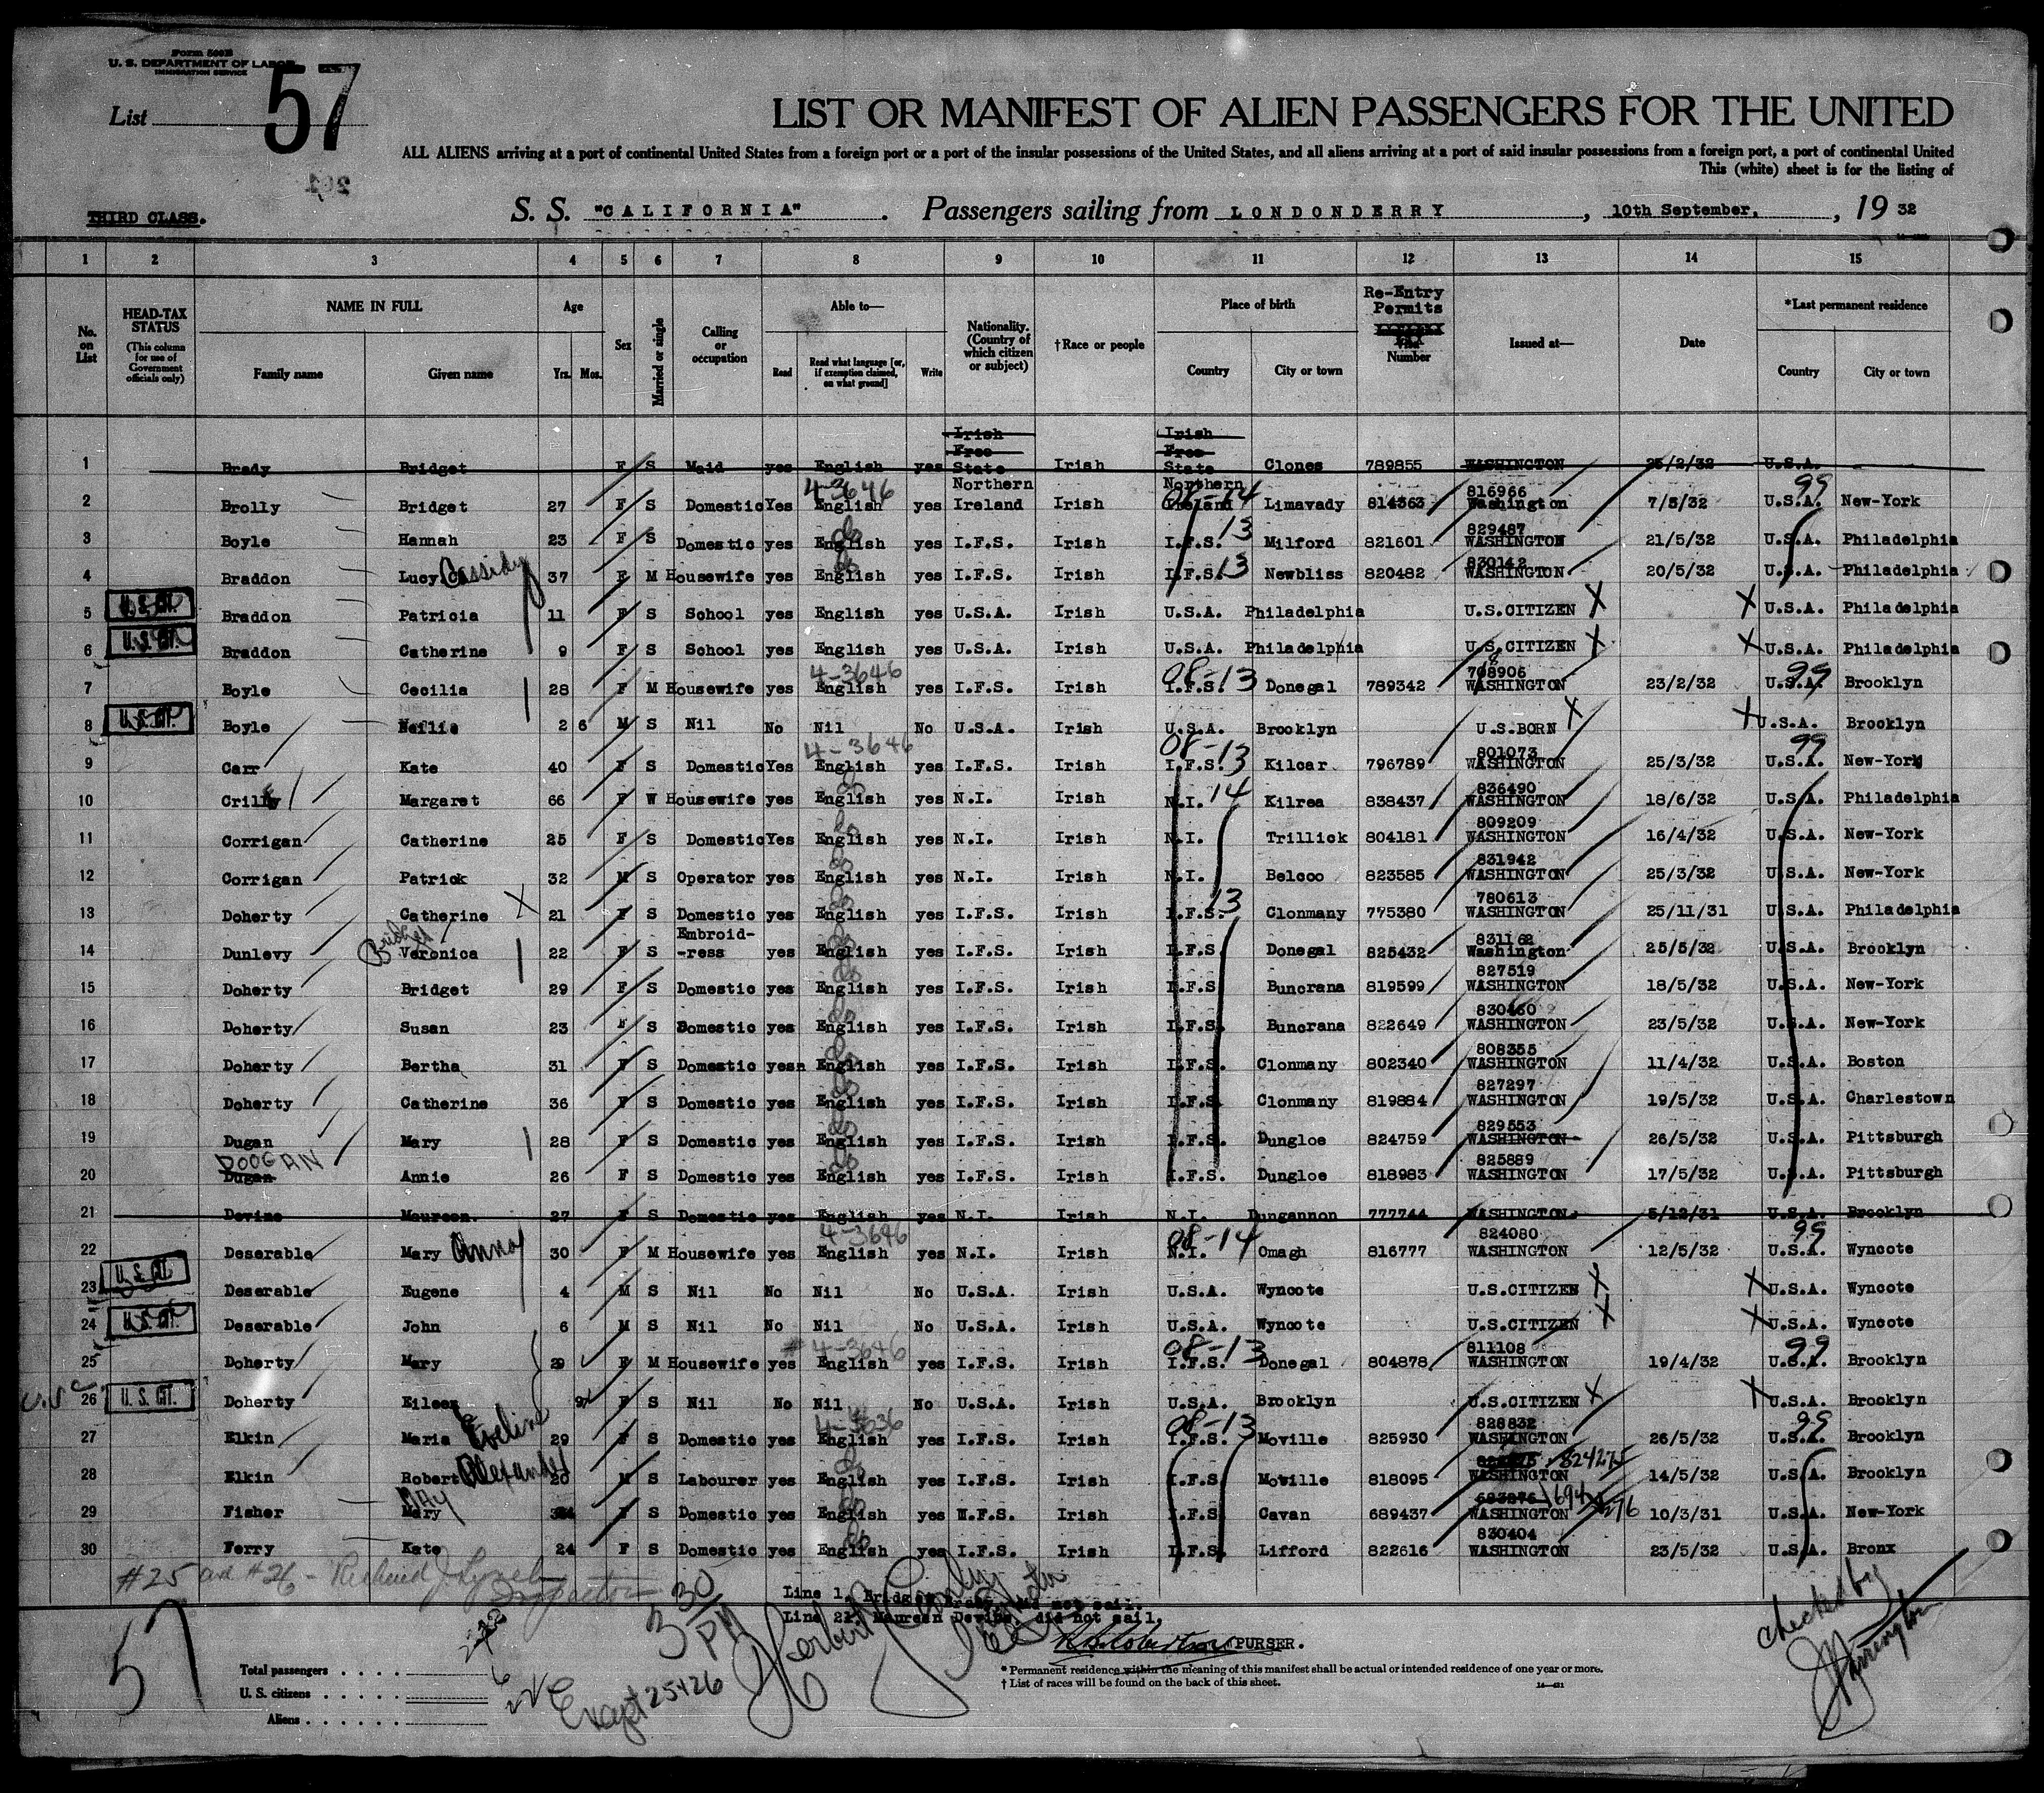 Form 500B
U. S. DEPARTMENT OF LABOR
IMMIGRATION SERVICE
List 57
LIST OR MANIFEST OF ALIEN PASSENGERS FOR THE UNITED
ALL ALIENS arriving at a port of continental United States from a foreign port or a port of the insular possessions of the United States, and all aliens arriving at a port of said insular possessions from a foreign port, a port of continental United
This (white) sheet is for the listing of
THIRD CLASS. S. S. "CALIFORNIA" . Passengers sailing from LONDONDERRY , 10th September, , 19 32
1 2 3 4 5 6 7 8 9 10 11 12 13 14 15
No. on List HEAD-TAX STATUS (This column for use of Government officials only) NAME IN FULL Family name Given name Age Yrs. Mos. Sex Married or single Calling or occupation Able to— Read Read what language [or, if exemption claimed, on what ground] Write Nationality. (Country of which citizen or subject) †Race or people Place of birth Country City or town Re-Entry Permits Number Issued at— Date *Last permanent residence Country City or town
1 Brady Bridget F S Maid yes English yes Irish Free State Irish Irish Free State Clones 789855 WASHINGTON 25/2/32 U.S.A.
2 Brolly Bridget 27 F S Domestic Yes 4-3646 English yes Northern Ireland Irish Northern Ireland 08-14 Limavady 814363 816966 Washington 7/5/32 U.S.A. 99 New-York
3 Boyle Hannah 23 F S Domestic yes English do yes I.F.S. Irish I.F.S. 13 Milford 821601 829487 WASHINGTON 21/5/32 U.S.A. Philadelphia
4 Braddon Lucy Cassidy 37 F M Housewife yes English do yes I.F.S. Irish I.F.S. 13 Newbliss 820482 830142 WASHINGTON 20/5/32 U.S.A. Philadelphia
5 U.S. CIT. Braddon Patricia 11 F S School yes English yes U.S.A. Irish U.S.A. Philadelphia U.S.CITIZEN X X U.S.A. Philadelphia
6 U.S. CIT. Braddon Catherine 9 F S School yes English yes U.S.A. Irish U.S.A. Philadelphia U.S.CITIZEN X X U.S.A. Philadelphia
7 Boyle Cecilia 28 F M Housewife yes 4-3646 English yes I.F.S. Irish I.F.S. 08-13 Donegal 789342 798906 WASHINGTON 23/2/32 U.S.A. 99 Brooklyn
8 U.S. CIT. Boyle Neilie 2 6 M S Nil No Nil No U.S.A. Irish U.S.A. Brooklyn U.S.BORN X X U.S.A. Brooklyn
9 Carr Kate 40 F S Domestic Yes 4-3646 English yes I.F.S. Irish I.F.S. 08-13 Kilcar 796789 801073 WASHINGTON 25/3/32 U.S.A. 99 New-York
10 Crilly Margaret 66 F W Housewife yes English do yes N.I. Irish N.I. 14 Kilrea 838437 836490 WASHINGTON 18/6/32 U.S.A. Philadelphia
11 Corrigan Catherine 25 F S Domestic Yes English do yes N.I. Irish N.I. Trillick 804181 809209 WASHINGTON 16/4/32 U.S.A. New-York
12 Corrigan Patrick 32 M S Operator yes English do yes N.I. Irish N.I. Belcoo 823585 831942 WASHINGTON 25/3/32 U.S.A. New-York
13 Doherty Catherine X 21 F S Domestic yes English do yes I.F.S. Irish I.F.S. 13 Clonmany 775380 780613 WASHINGTON 25/11/31 U.S.A. Philadelphia
14 Dunlevy Bridget Veronica 22 F S Embroid-ress yes English do yes I.F.S. Irish I.F.S Donegal 825432 831162 Washington 25/5/32 U.S.A. Brooklyn
15 Doherty Bridget 29 F S Domestic yes English do yes I.F.S. Irish I.F.S Buncrana 819599 827519 WASHINGTON 18/5/32 U.S.A. New-York
16 Doherty Susan 23 F S Domestic yes English do yes I.F.S. Irish I.F.S. Buncrana 822649 830460 WASHINGTON 23/5/32 U.S.A. New-York
17 Doherty Bertha 31 F S Domestic yes English do yes I.F.S. Irish I.F.S. Clonmany 802340 808355 WASHINGTON 11/4/32 U.S.A. Boston
18 Doherty Catherine 36 F S Domestic yes English do yes I.F.S. Irish I.F.S. Clonmany 819884 827297 WASHINGTON 19/5/32 U.S.A. Charlestown
19 Dugan Mary 28 F S Domestic yes English do yes I.F.S. Irish I.F.S. Dungloe 824759 829553 WASHINGTON 26/5/32 U.S.A. Pittsburgh
20 DOOGAN Dugan Annie 26 F S Domestic yes English do yes I.F.S. Irish I.F.S. Dungloe 818983 825889 WASHINGTON 17/5/32 U.S.A. Pittsburgh
21 Devine Maureen. 27 F S Domestic yes English yes N.I. Irish N.I. Dungannon 777744 WASHINGTON 5/12/31 U.S.A. Brooklyn
22 Deserable Mary Anna 30 F M Housewife yes 4-3646 English yes N.I. Irish N.I. 08-14 Omagh 816777 824080 WASHINGTON 12/5/32 U.S.A. 99 Wyncote
23 U.S. CIT. Deserable Eugene 4 M S Nil No Nil No U.S.A. Irish U.S.A. Wyncote U.S.CITIZEN X X U.S.A. Wyncote
24 U.S. CIT. Deserable John 6 M S Nil No Nil No U.S.A. Irish U.S.A. Wyncote U.S.CITIZEN X X U.S.A. Wyncote
25 Doherty Mary 29 F M Housewife yes # 4-3646 English yes I.F.S. Irish I.F.S. 08-13 Donegal 804878 811108 WASHINGTON 19/4/32 U.S.A. 99 Brooklyn
26 U.S. CIT. Doherty Eileen F S Nil No Nil No U.S.A. Irish U.S.A. Brooklyn U.S.CITIZEN X X U.S.A. Brooklyn
27 Elkin Maria Eveline 29 F S Domestic yes English yes I.F.S. Irish I.F.S. 08-13 Moville 825930 828832 WASHINGTON 26/5/32 U.S.A. 99 Brooklyn
28 Elkin Robert Alexander 20 M S Labourer yes English do yes I.F.S. Irish I.F.S Moville 818095 824275 WASHINGTON 14/5/32 U.S.A. Brooklyn
29 Fisher MAY Mary F S Domestic yes English do yes I.F.S. Irish I.F.S Cavan 689437 WASHINGTON 10/3/31 U.S.A. New-York
30 Ferry Kate 24 F S Domestic yes English do yes I.F.S. Irish I.F.S. Lifford 822616 830404 WASHINGTON 23/5/32 U.S.A. Bronx
#25 and #26 - Richard J. Lynch Inspector
Line 1, Bridget Brady, did not sail.
Line 21, Maureen Devine, did not sail,
3 30 PM
PURSER.
57
Except 25+26
checked by
Total passengers
U. S. citizens
Aliens
* Permanent residence within the meaning of this manifest shall be actual or intended residence of one year or more.
† List of races will be found on the back of this sheet.